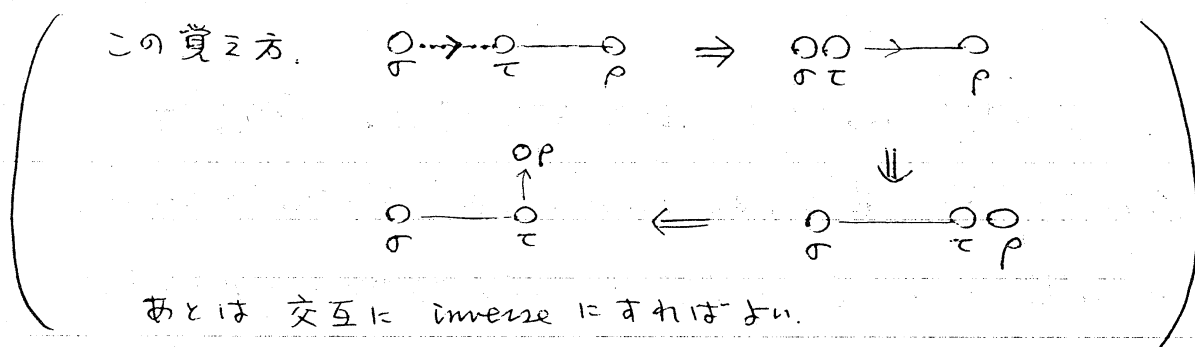 この覚え方. σ τ ρ ⇒ στ ρ
⇓
σ τ ρ ⇐ σ τ ρ
あとは 交互に inverse にすればよい.